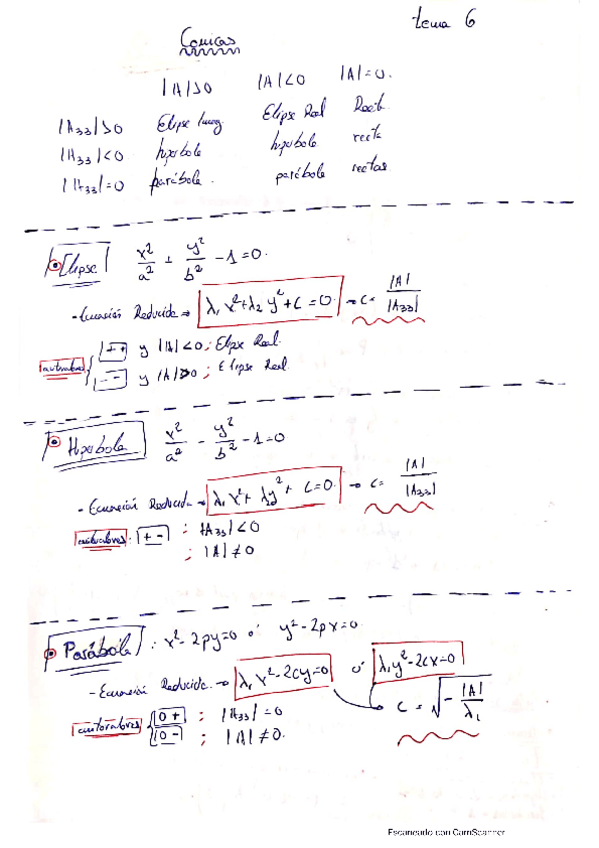 tema 6
Conicas
|A|>0 |A|<0 |A|=0.
|A33|>0 Elipse Imag Elipse Real Rect.
|A33|<0 hiperbole hiperbole recta
|A33|=0 parábola. parábola rectas
Elipse x²/a² + y²/b² - 1 = 0.
- Ecuación Reducida → λ1 x² + λ2 y² + C = 0. → C = |A|/|A33|
autovalores ++ y |A|<0 ; Elipse Real.
-- y |A|>0 ; Elipse Real.
Hiperbola x²/a² - y²/b² - 1 = 0
- Ecuación Reducida → λ1 x² + λ2 y² + C = 0. → C = |A|/|A33|
autovalores : +- ; |A33| < 0
; |A| ≠ 0
Parábola : x² - 2py = 0 ó y² - 2px = 0
- Ecuación Reducida. → λ1 x² - 2cy = 0 ó λ1 y² - 2cx = 0
autovalores 0+ ; |A33| = 0 C = √(-|A|/λ1)
0- ; |A| ≠ 0.
Escaneado con CamScanner